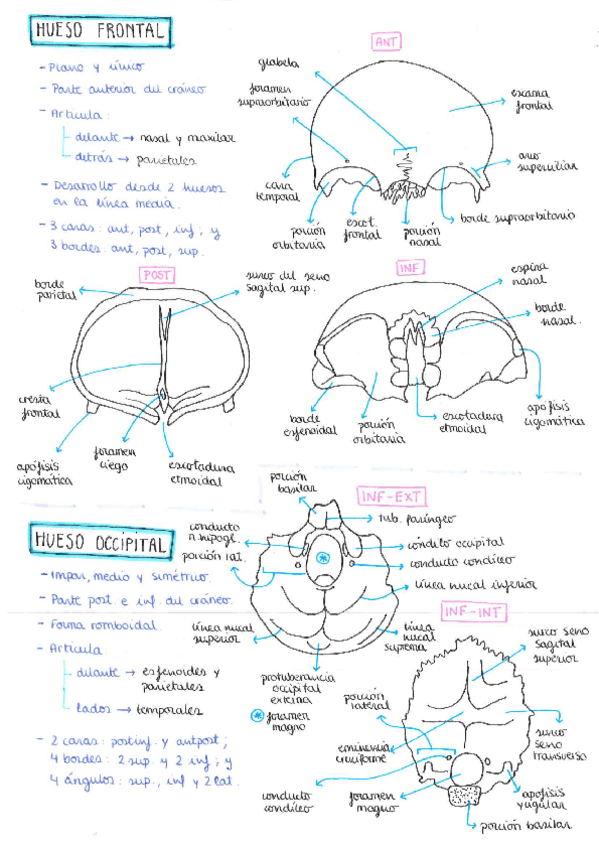 HUESO FRONTAL
- Plano y único
- Parte anterior del cráneo
- Articula:
delante → nasal y maxilar
detrás → parietales
- Desarrollo desde 2 huesos
en la línea media.
- 3 caras: ant, post, inf; y
3 bordes: ant, post, sup.
ANT
glabela
foramen
supraorbitario
escama
frontal
arco
superciliar
cara
temporal
porción
orbitaria
escot.
frontal
porción
nasal
borde supraorbitario
POST
borde
parietal
surco del seno
sagital sup.
cresta
frontal
apófisis
cigomática
foramen
ciego
escotadura
etmoidal
INF
espina
nasal
borde
nasal.
borde
esfenoidal
porción
orbitaria
escotadura
etmoidal
apófisis
cigomática
HUESO OCCIPITAL
- Impar, medio y simétrico.
- Parte post. e inf. del cráneo.
- Forma romboidal.
- Articula
delante → esfenoides y
parietales
lados → temporales
- 2 caras: postinf. y antpost;
4 bordes: 2 sup. y 2 inf; y
4 ángulos: sup., inf y 2 lat.
INF-EXT
porción
basilar
tub. faríngeo
conducto
n. hipogl.
porción lat.
cóndilo occipital
conducto condíleo
línea nucal inferior
línea nucal
superior
línea
nucal
suprema
protuberancia
occipital
externa
* foramen
magno
INF-INT
surco seno
sagital
superior
porción
lateral
eminencia
cruciforme
surco
seno
transverso
conducto
condíleo
foramen
magno
apófisis
yugular
porción basilar